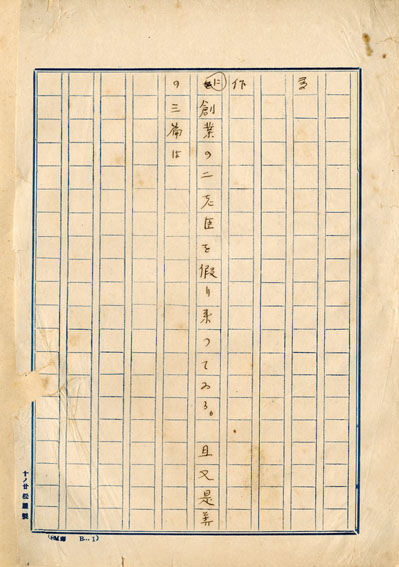 る
作
に創業の二老臣を假り来つてゐる。且又是等
の三篇は
十ノ廿 松屋製